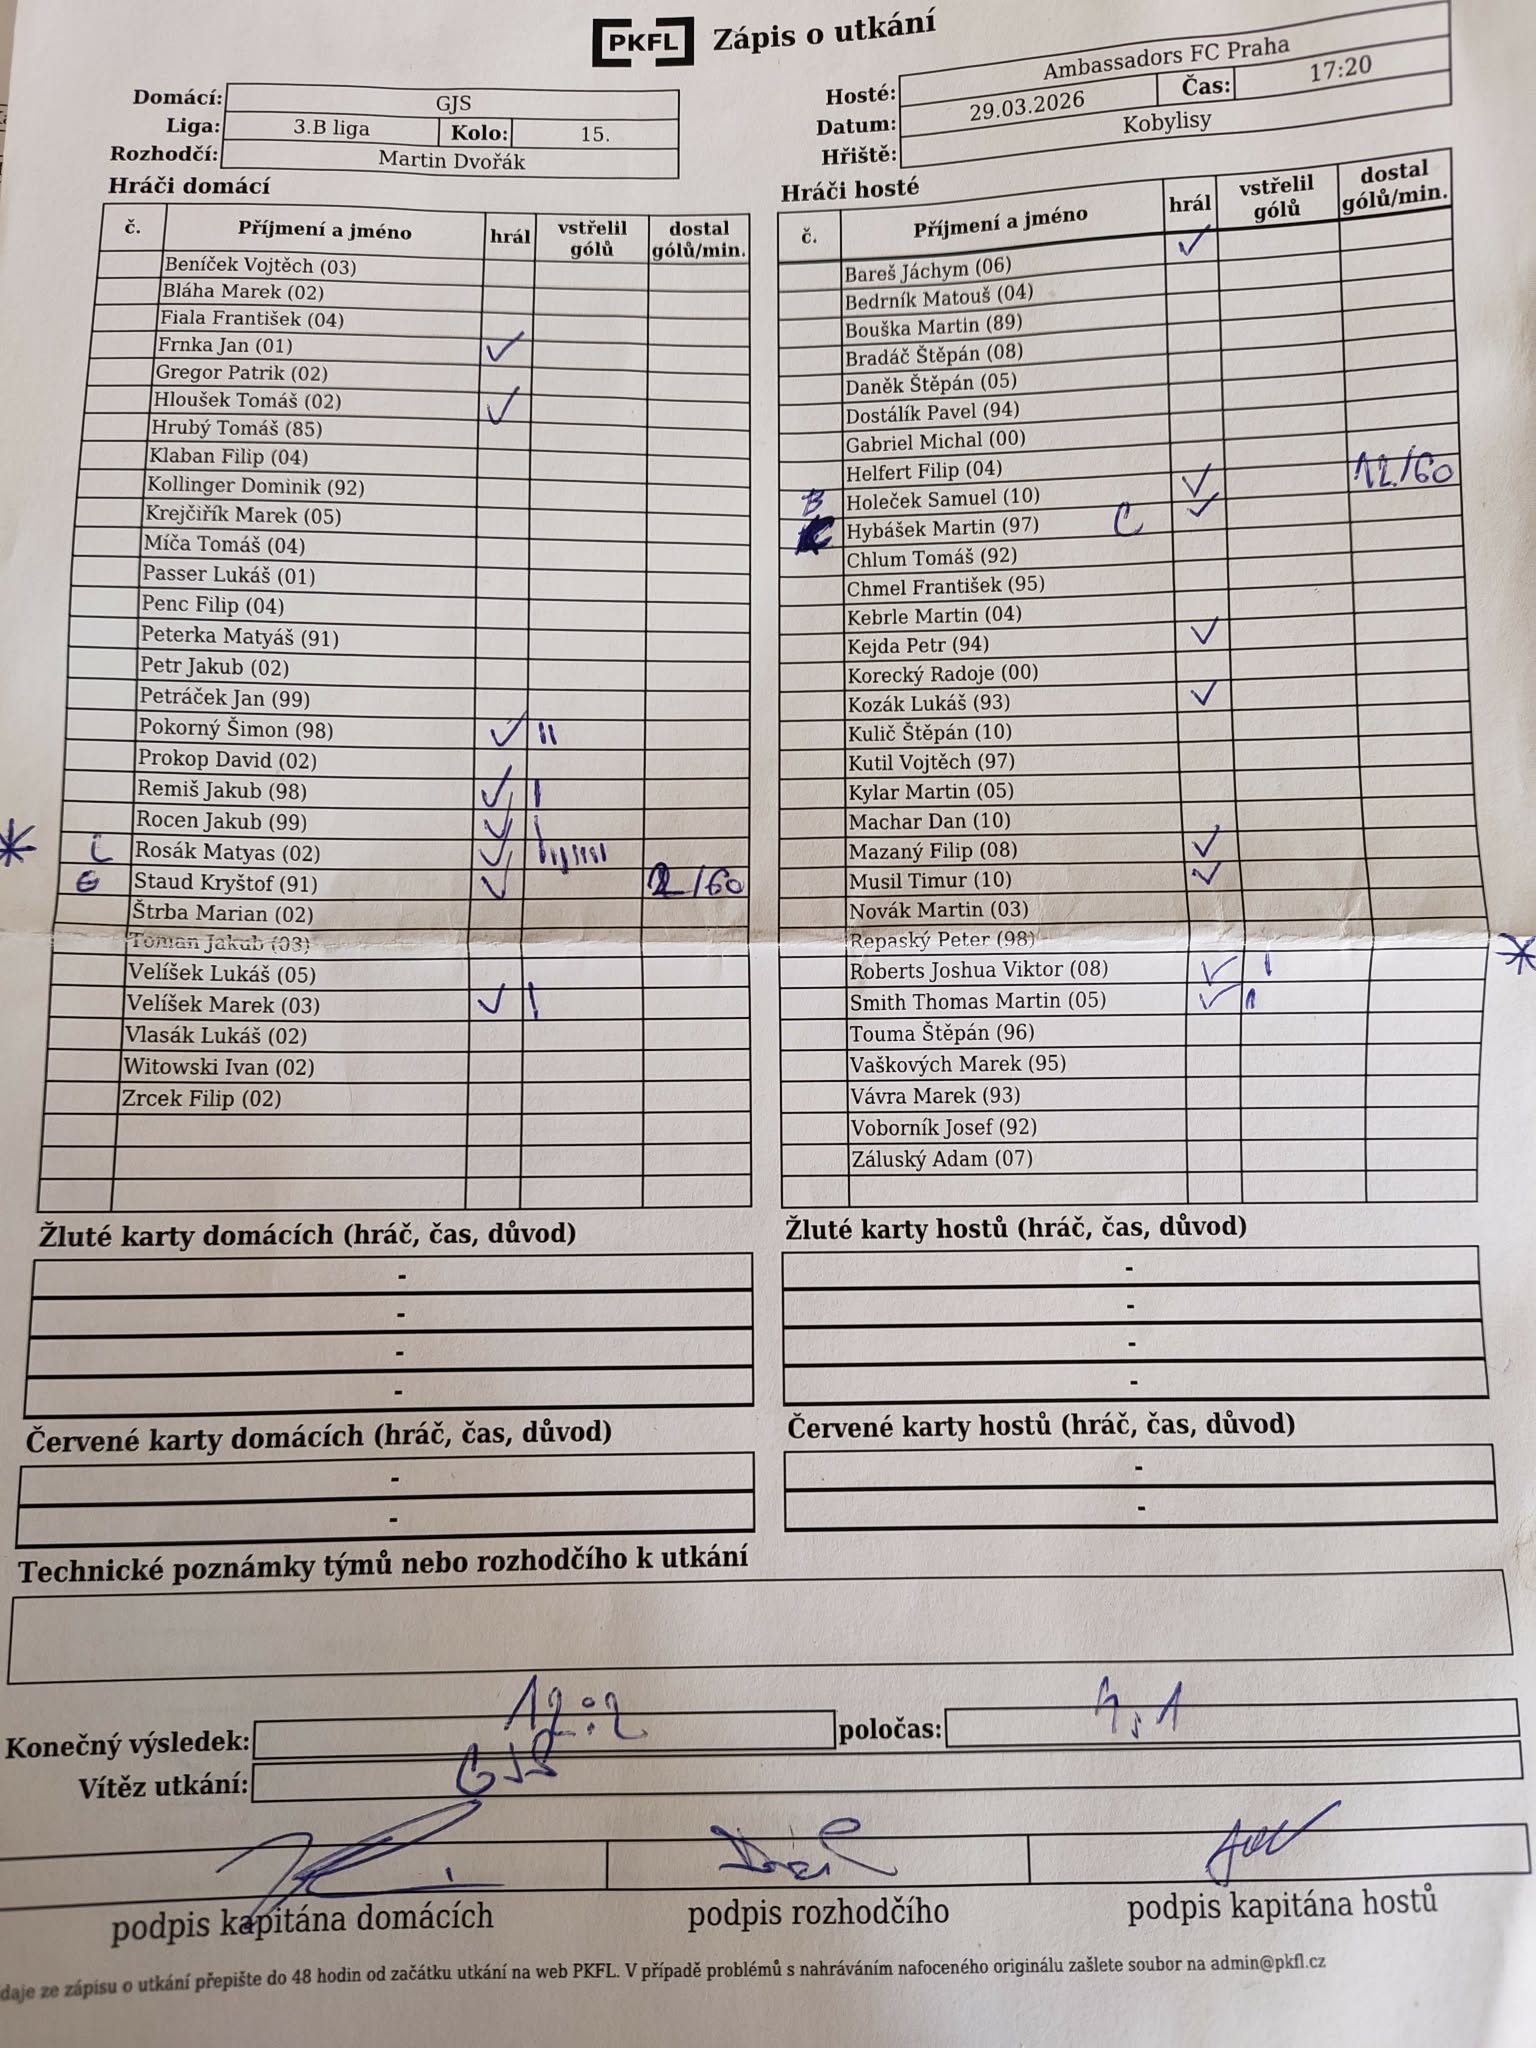 PKFL Zápis o utkání
Domácí: GJS
Liga: 3.B liga Kolo: 15.
Rozhodčí: Martin Dvořák
Hosté: Ambassadors FC Praha
Datum: 29.03.2026 Čas: 17:20
Hřiště: Kobylisy
Hráči domácí
č. Příjmení a jméno hrál vstřelil gólů dostal gólů/min.
Beníček Vojtěch (03)
Bláha Marek (02)
Fiala František (04)
Frnka Jan (01) ✓
Gregor Patrik (02)
Hloušek Tomáš (02) ✓
Hrubý Tomáš (85)
Klaban Filip (04)
Kollinger Dominik (92)
Krejčiřík Marek (05)
Míča Tomáš (04)
Passer Lukáš (01)
Penc Filip (04)
Peterka Matyáš (91)
Petr Jakub (02)
Petráček Jan (99)
Pokorný Šimon (98) ✓ II
Prokop David (02)
Remiš Jakub (98) ✓ I
Rocen Jakub (99) ✓ I
Rosák Matyas (02) ✓
Staud Kryštof (91) ✓ 2/60
Štrba Marian (02)
Toman Jakub (03)
Velíšek Lukáš (05)
Velíšek Marek (03) ✓ I
Vlasák Lukáš (02)
Witowski Ivan (02)
Zrcek Filip (02)
Hráči hosté
č. Příjmení a jméno hrál vstřelil gólů dostal gólů/min.
Bareš Jáchym (06) ✓
Bedrník Matouš (04)
Bouška Martin (89)
Bradáč Štěpán (08)
Daněk Štěpán (05)
Dostálík Pavel (94)
Gabriel Michal (00)
Helfert Filip (04)
B Holeček Samuel (10) ✓ 12/60
Hybášek Martin (97) C ✓
Chlum Tomáš (92)
Chmel František (95)
Kebrle Martin (04)
Kejda Petr (94) ✓
Korecký Radoje (00)
Kozák Lukáš (93) ✓
Kulič Štěpán (10)
Kutil Vojtěch (97)
Kylar Martin (05)
Machar Dan (10)
Mazaný Filip (08) ✓
Musil Timur (10) ✓
Novák Martin (03)
Repaský Peter (98)
Roberts Joshua Viktor (08) ✓ I
Smith Thomas Martin (05) ✓ I
Touma Štěpán (96)
Vaškových Marek (95)
Vávra Marek (93)
Voborník Josef (92)
Záluský Adam (07)
Žluté karty domácích (hráč, čas, důvod)
-
-
-
-
Žluté karty hostů (hráč, čas, důvod)
-
-
-
-
Červené karty domácích (hráč, čas, důvod)
-
-
Červené karty hostů (hráč, čas, důvod)
-
-
Technické poznámky týmů nebo rozhodčího k utkání
Konečný výsledek: 12:2 poločas: 4:1
Vítěz utkání: GJS
podpis kapitána domácích podpis rozhodčího podpis kapitána hostů
daje ze zápisu o utkání přepište do 48 hodin od začátku utkání na web PKFL. V případě problémů s nahráváním nafoceného originálu zašlete soubor na admin@pkfl.cz